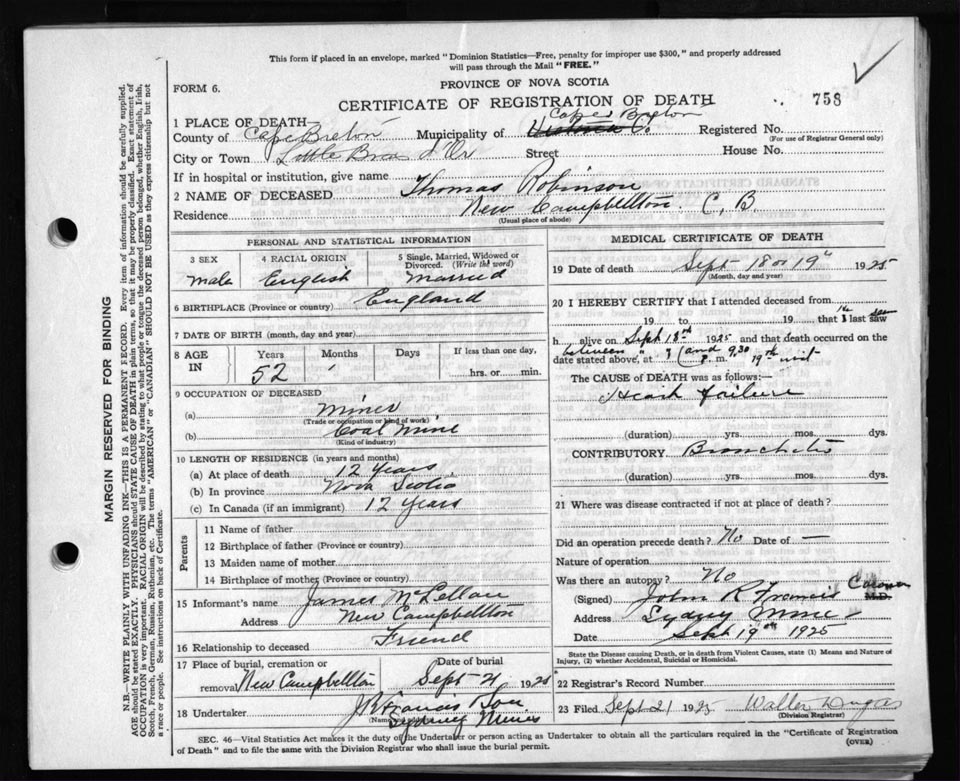 This form if placed in an envelope, marked "Dominion Statistics—Free, penalty for improper use $300," and properly addressed
will pass through the Mail "FREE."
FORM 6.
PROVINCE OF NOVA SCOTIA
CERTIFICATE OF REGISTRATION OF DEATH
758
1 PLACE OF DEATH
County of Cape Breton Municipality of Victoria Co. Cape Breton Registered No.
(For use of Registrar General only)
City or Town Little Bras d'Or Street House No.
If in hospital or institution, give name
2 NAME OF DECEASED Thomas Robinson
Residence New Campbellton C. B.
(Usual place of abode)
PERSONAL AND STATISTICAL INFORMATION
3 SEX male
4 RACIAL ORIGIN English
5 Single, Married, Widowed or Divorced. (Write the word) married
6 BIRTHPLACE (Province or country) England
7 DATE OF BIRTH (month, day and year)
8 AGE IN Years 52 Months Days If less than one day, hrs. or min.
9 OCCUPATION OF DECEASED
(a) miner
(Trade or occupation or kind of work)
(b) Coal Mine
(Kind of industry)
10 LENGTH OF RESIDENCE (in years and months)
(a) At place of death 12 years
(b) In province Nova Scotia
(c) In Canada (if an immigrant) 12 years
Parents
11 Name of father
12 Birthplace of father (Province or country)
13 Maiden name of mother
14 Birthplace of mother (Province or country)
15 Informant's name James McLellan
Address New Campbellton
16 Relationship to deceased Friend
17 Place of burial, cremation or removal New Campbellton
Date of burial Sept 21 1925
18 Undertaker J R Francis & Son
(Name
Sydney Mines
MEDICAL CERTIFICATE OF DEATH
19 Date of death Sept 18 or 19th 1925
(Month, day and year)
20 I HEREBY CERTIFY that I attended deceased from
19 to 19 that I last saw
h alive on Sept 18th 1925 and that death occurred on the
date stated above, at between 8 and 9.30 P. m. 19th
The CAUSE of DEATH was as follows:—
Heart failure
(duration) yrs. mos. dys.
CONTRIBUTORY Bronchitis
(duration) yrs. mos. dys.
21 Where was disease contracted if not at place of death?
Did an operation precede death? No Date of —
Nature of operation
Was there an autopsy? No
(Signed) John R Francis Coroner M.D.
Address Sydney Mines
Date Sept 19th 1925
State the Disease causing Death, or in death from Violent Causes, state (1) Means and Nature of
Injury, (2) whether Accidental, Suicidal or Homicidal.
22 Registrar's Record Number
23 Filed Sept 21 1925 Walter Dugas
(Division Registrar)
SEC. 46—Vital Statistics Act makes it the duty of the Undertaker or person acting as Undertaker to obtain all the particulars required in the "Certificate of Registration
of Death" and to file the same with the Division Registrar who shall issue the burial permit.
(OVER)
MARGIN RESERVED FOR BINDING
N.B.—WRITE PLAINLY WITH UNFADING INK—THIS IS A PERMANENT RECORD. Every item of information should be carefully supplied.
AGE should be stated EXACTLY. PHYSICIANS should STATE CAUSE OF DEATH in plain terms, so that it may be properly classified. Exact statement of
OCCUPATION is very important. RACIAL ORIGIN will be described by stating to what people or tongue the deceased person belonged, whether English, Irish,
Scotch, French, German, Russian, Ruthenian, etc. The terms "AMERICAN" or "CANADIAN" SHOULD NOT BE USED as they express citizenship but not
a race or people. See instructions on back of Certificate.